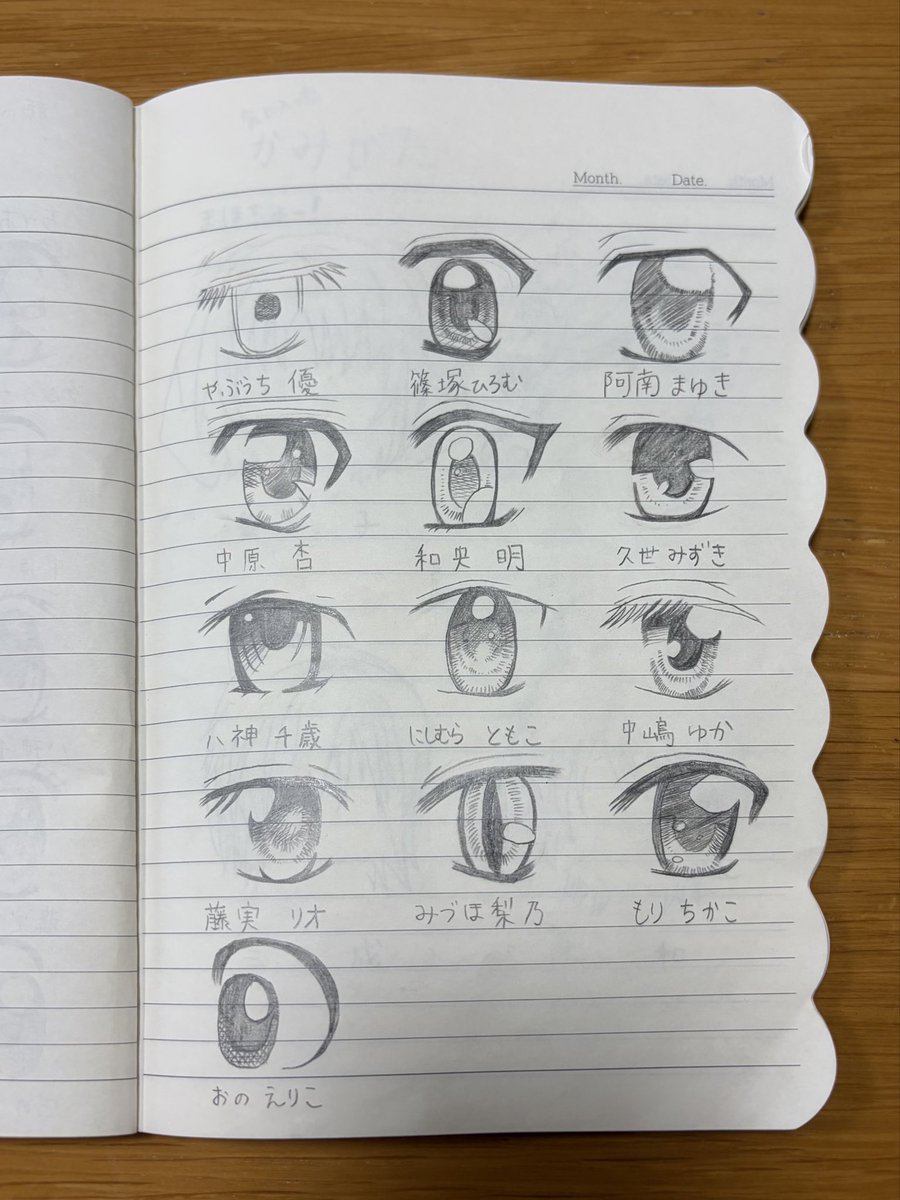 Month. Date.
やぶうち 優 篠塚ひろむ 阿南 まゆき
中原 杏 和央 明 久世 みずき
八神 千歳 にしむら ともこ 中嶋 ゆか
藤実 リオ みづほ梨乃 もり ちかこ
おの えりこ